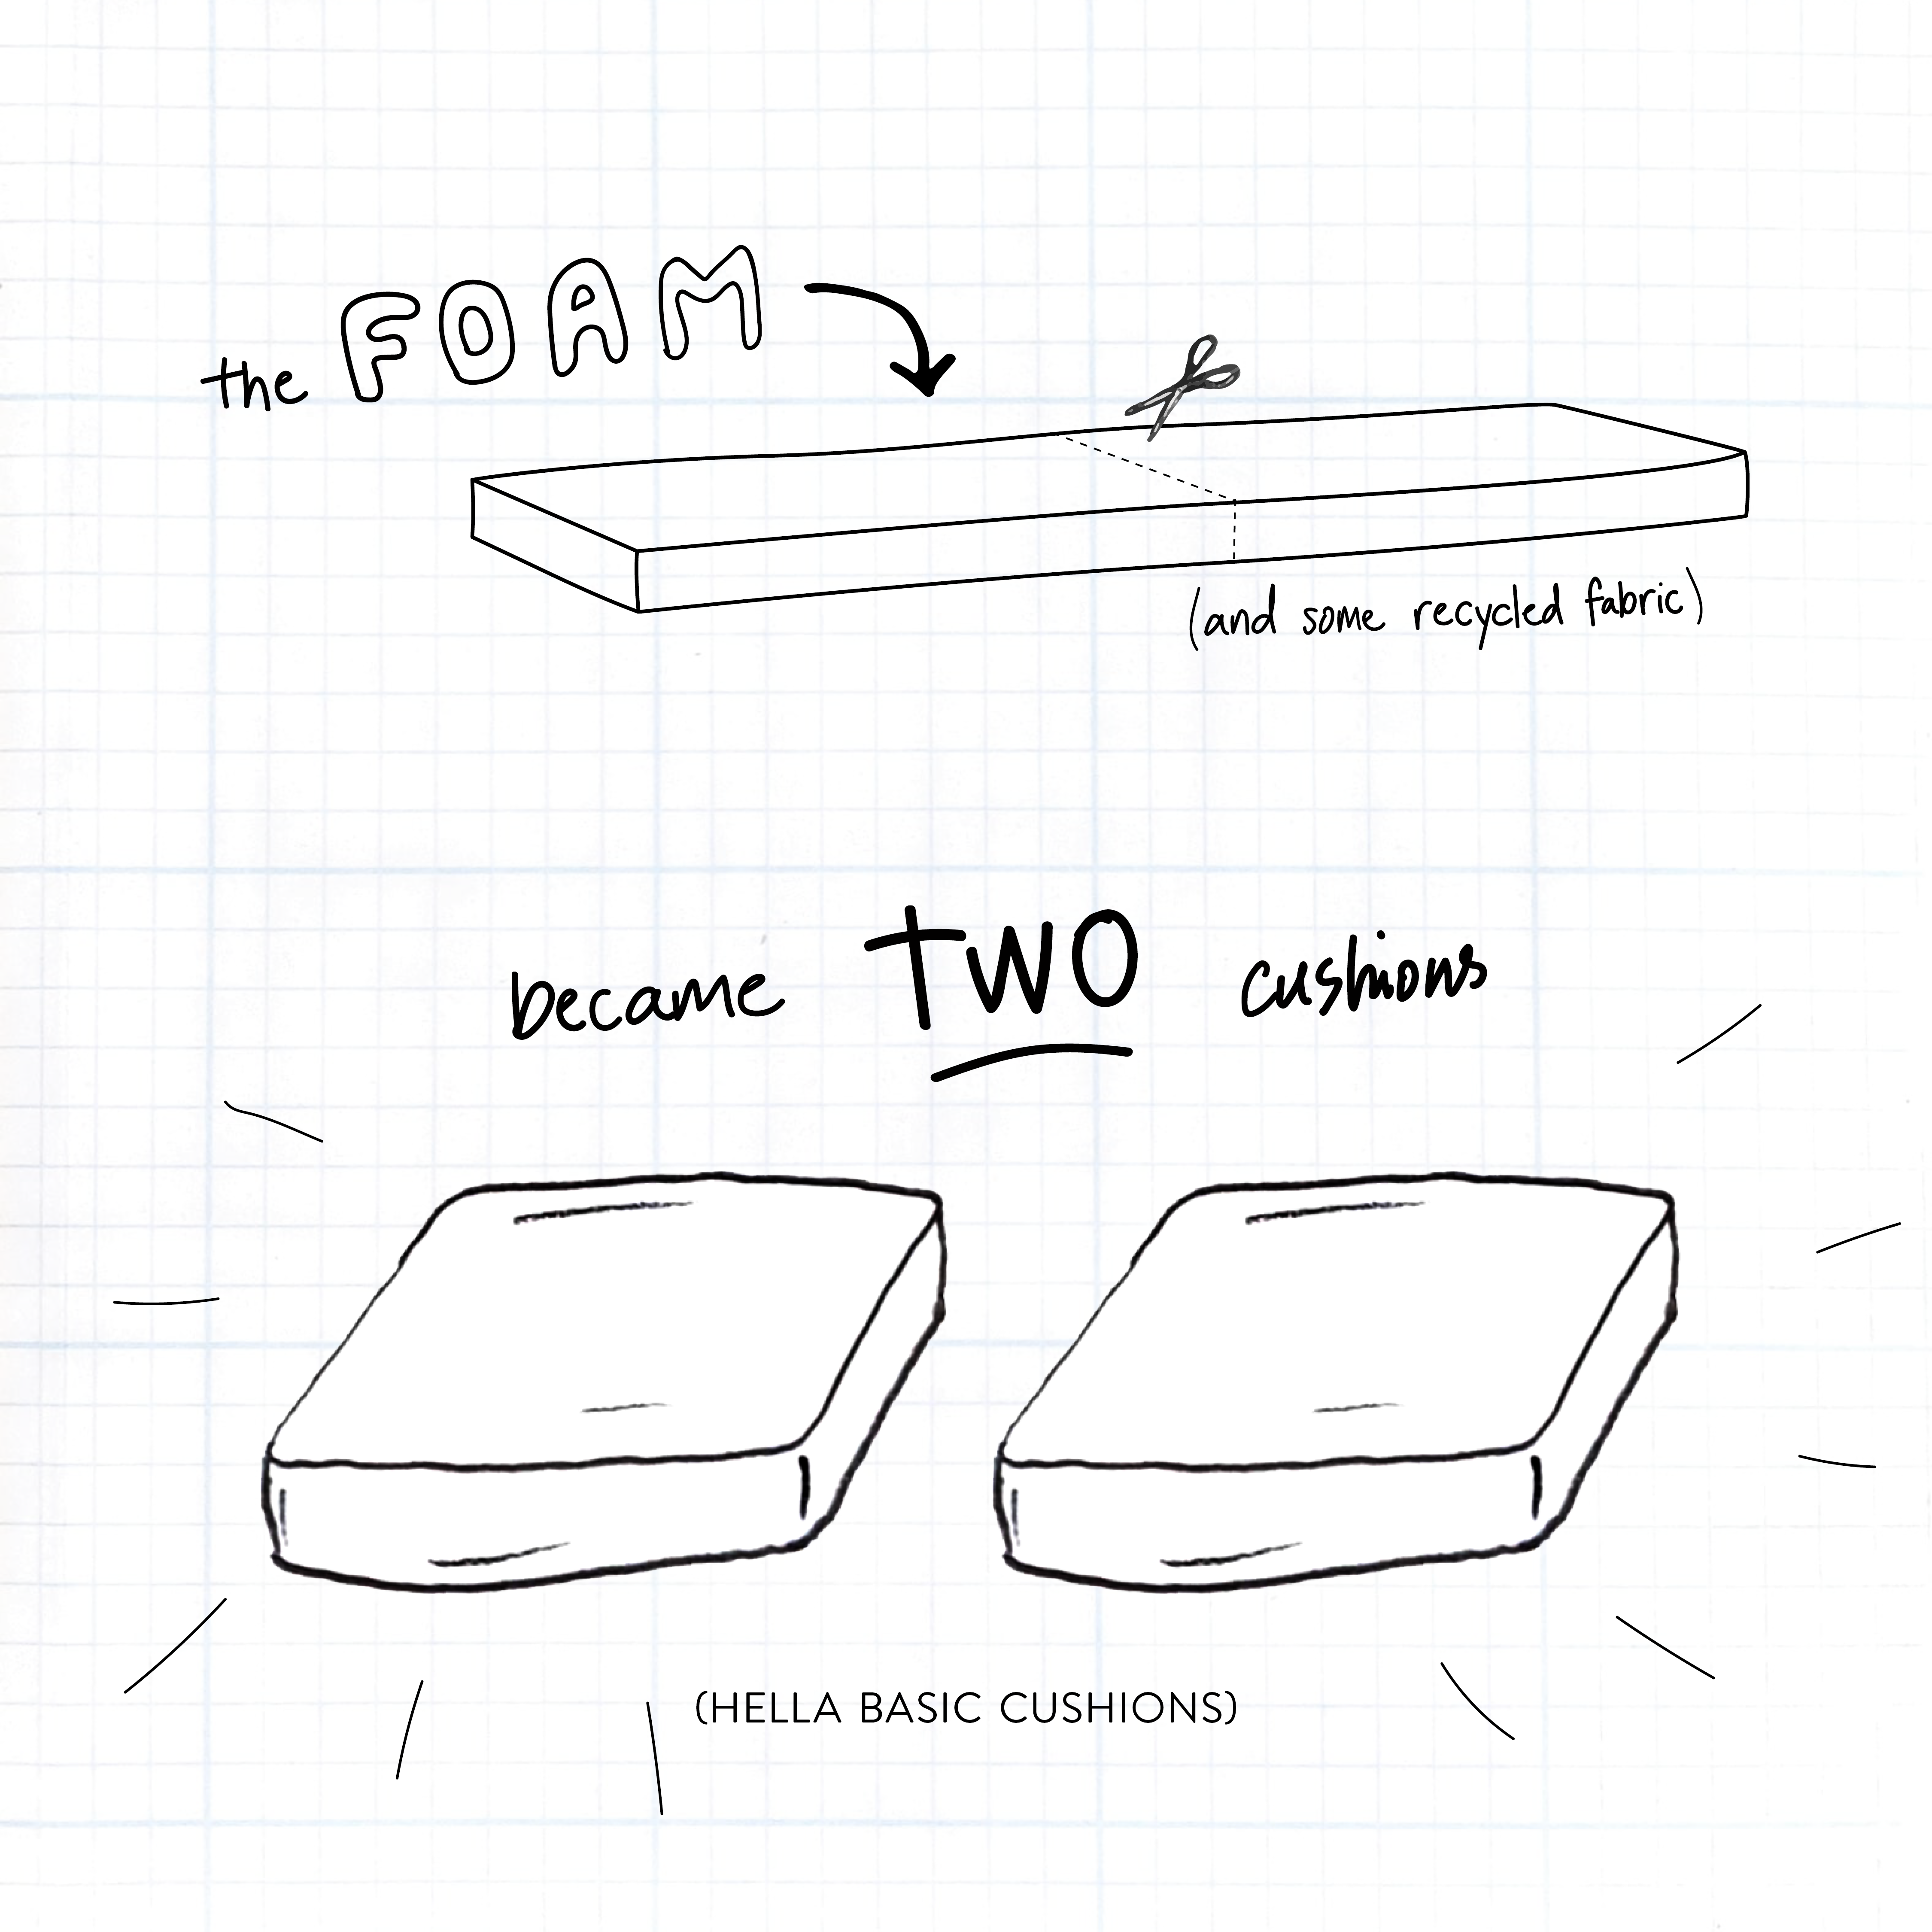 the FOAM
(and some recycled fabric)
became TWO cushions
(HELLA BASIC CUSHIONS)